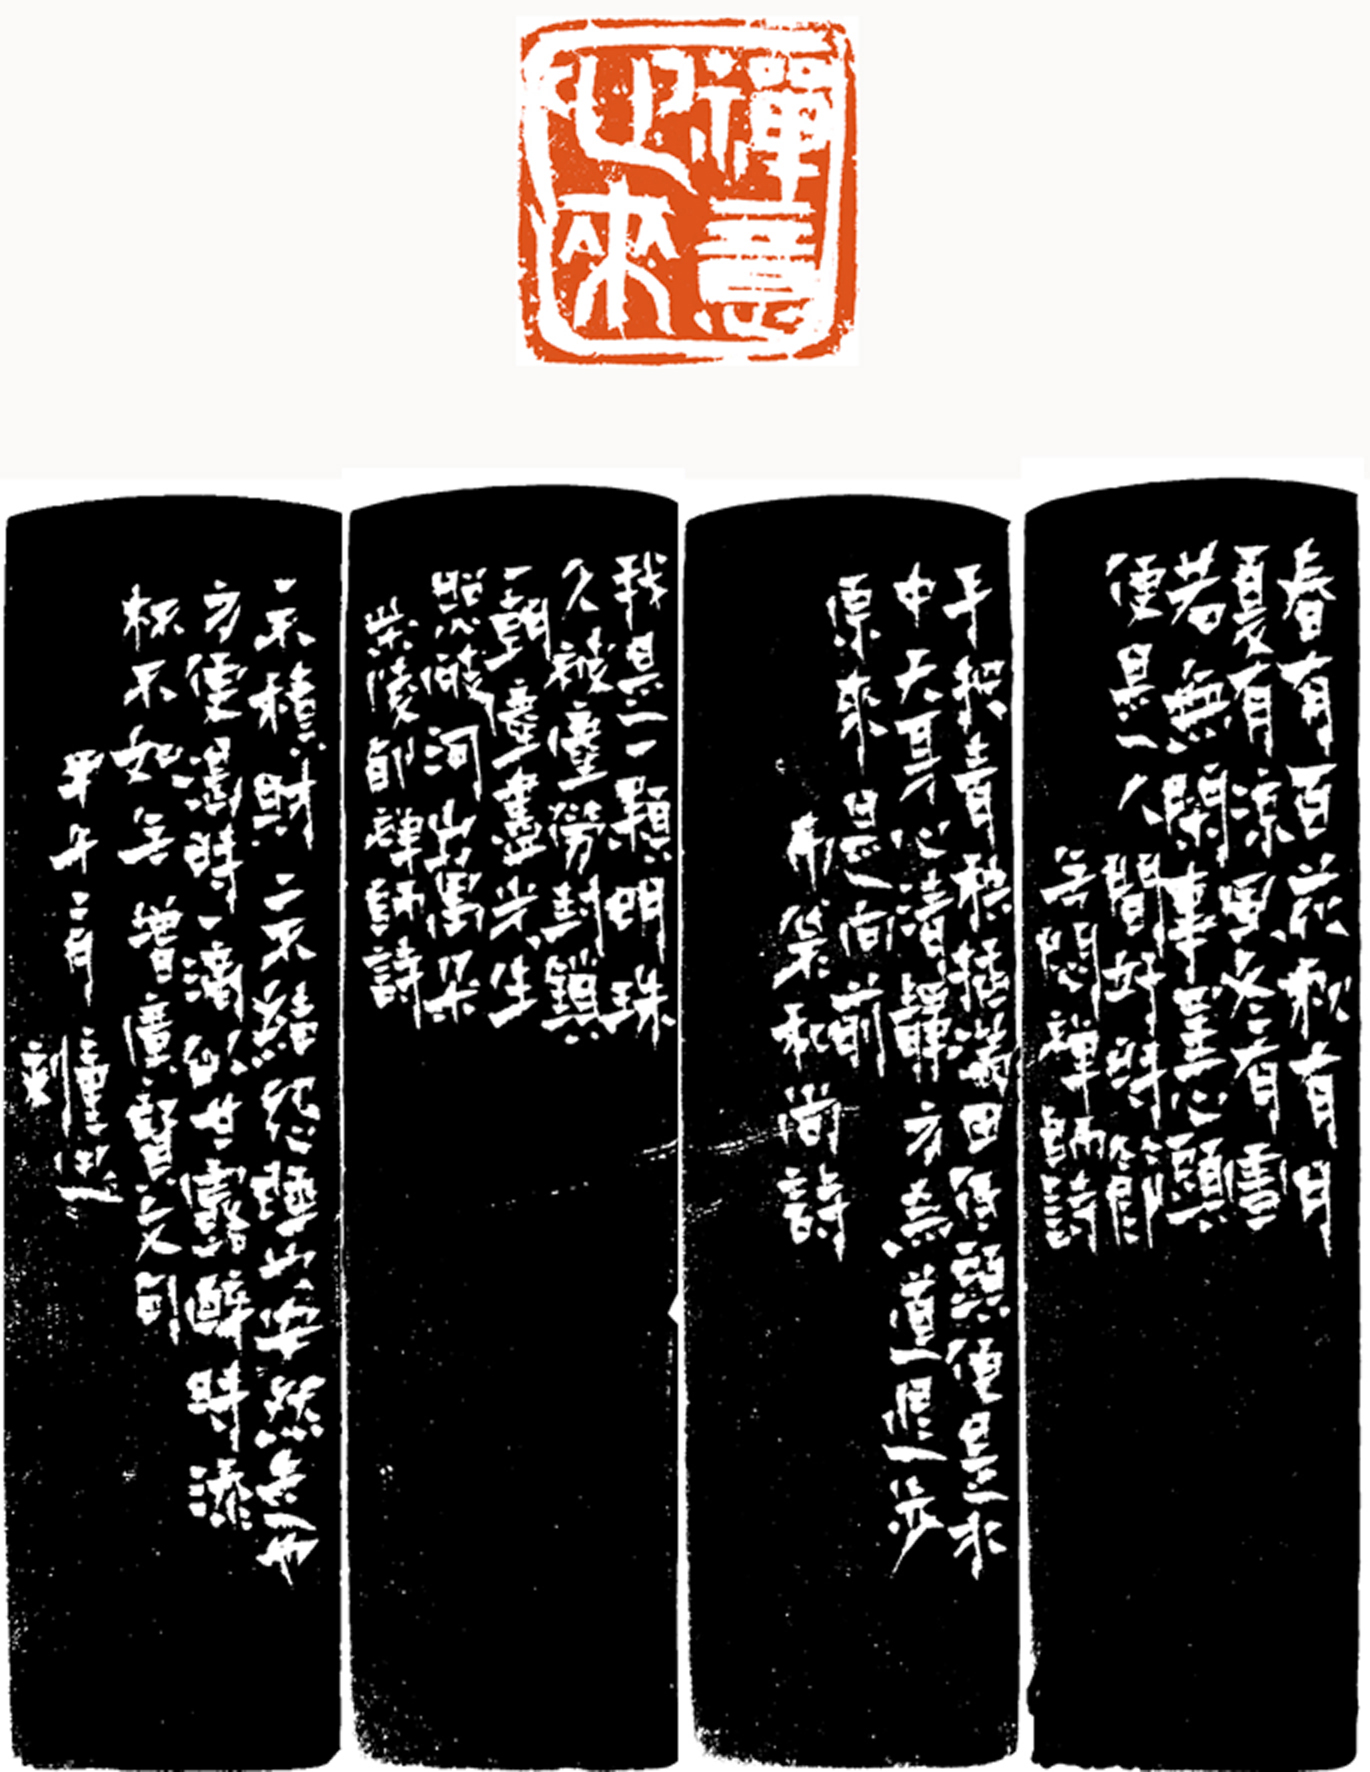 禪意
來
春有百花秋有月
夏有涼風冬有雪
若無閑事罣心頭
便是人間好時節
无門禪師詩
手把青秧插滿田低頭便見水
中天身心清靜方為道退一步
原來是向前
布袋和尚詩
我是一顆明珠
久被塵勞封鎖
一朝塵盡光生
照破河山萬朵
茶陵郁禪師詩
一不積財二不結怨睡也安然走也
方便渴時一滴似甘露醉時添
杯不如无 增廣賢文句
甲午二月
刻